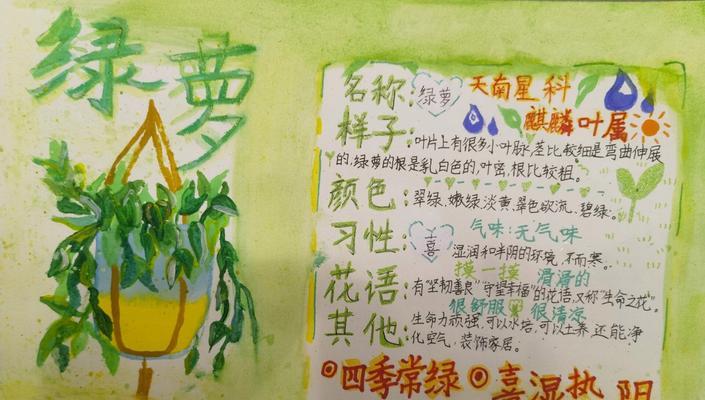 绿萝
名称:绿萝 天南星科
麒麟叶属
样子:叶片上有很多小叶脉,茎比较细是弯曲伸展
的,绿萝的根是乳白色的,叶密,根比较粗。
颜色:翠绿、嫩绿、淡黄、翠色欲流、碧绿。
习性:喜 气味:无气味
湿润和半阴的环境,不耐寒。
摸一摸 滑滑的
花语:有“坚韧善良”“守望幸福”的花语,又称“生命之花”。
很舒服 很清凉
其他:生命力顽强,可以水培,可以土养,还能净
化空气,装饰家居。
四季常绿 喜湿热 阴